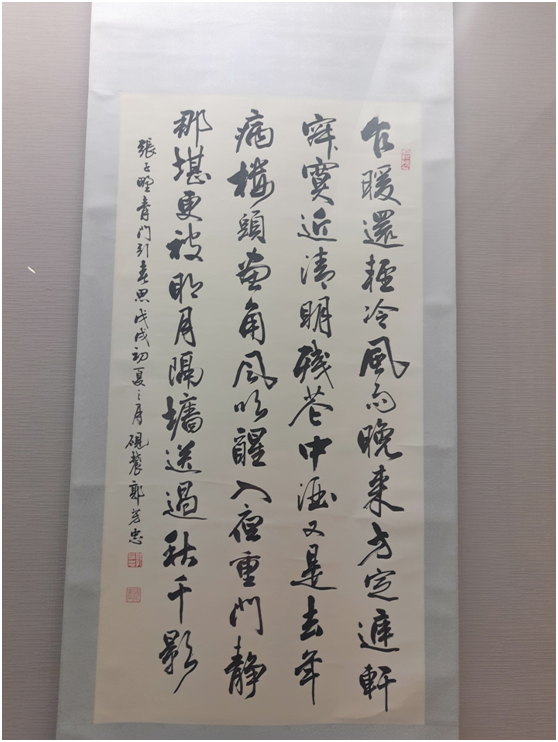 乍暖還輕冷風雨晚來方定庭軒
寂寞近清明殘花中酒又是去年
病樓頭畫角風吹醒入夜重門靜
那堪更被明月隔墻送過秋千影
張子野青門引春思戊戌初夏之月硯農郭芳忠